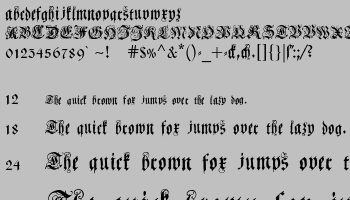 abcdefghijklmnopqrstuvwxyz
ABCDEFGHIJKLMNOPQRSTUVWX
0123456789` ~! #$%^&*()-_+=[]{}|:;/?
12 The quick brown fox jumps over the lazy dog.
18 The quick brown fox jumps over the lazy dog.
24 The quick brown fox jumps over the
The quick brown fox jum